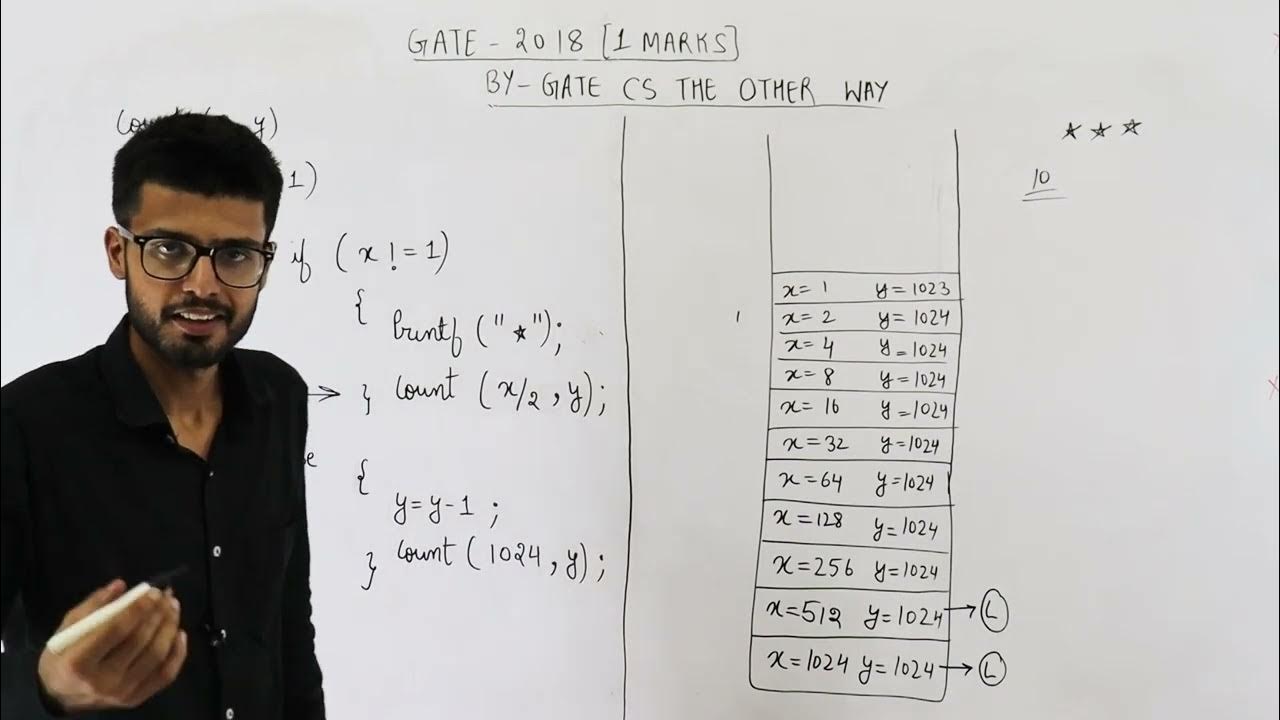 GATE - 2018 [1 MARKS]
BY- GATE CS THE OTHER WAY
y)
1)
if (x != 1)
{
printf ("★");
} count (x/2, y);
{
y = y-1 ;
} count (1024, y);
x= 1 y= 1023
x= 2 y= 1024
x= 4 y= 1024
x= 8 y= 1024
x= 16 y= 1024
x= 32 y= 1024
x= 64 y= 1024
x= 128 y= 1024
x= 256 y= 1024
x= 512 y= 1024 → L
x= 1024 y= 1024 → L
★ ★ ★
10